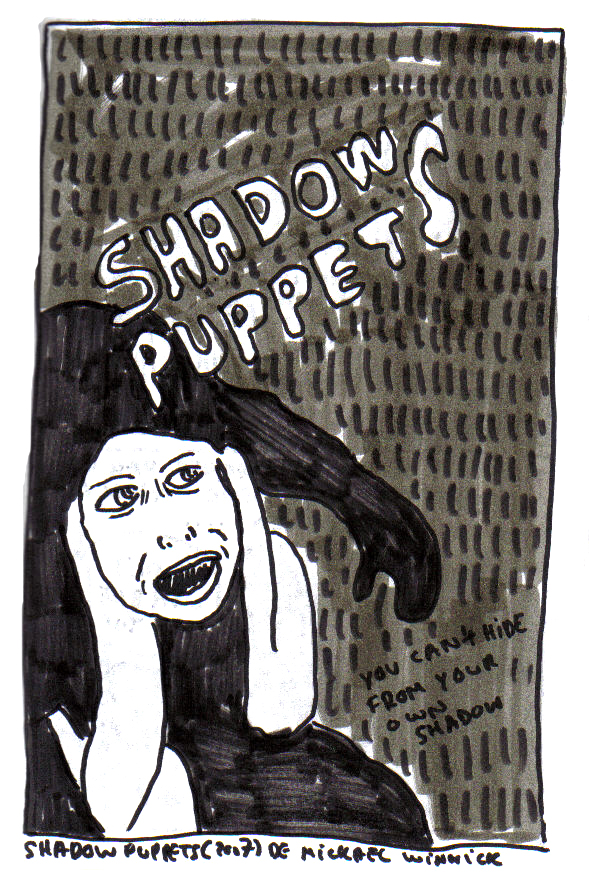 SHADOWS
PUPPETS
YOU CAN'T HIDE
FROM YOUR
OWN
SHADOW
SHADOW PUPPETS (2007) DE MICKAEL WINNICK